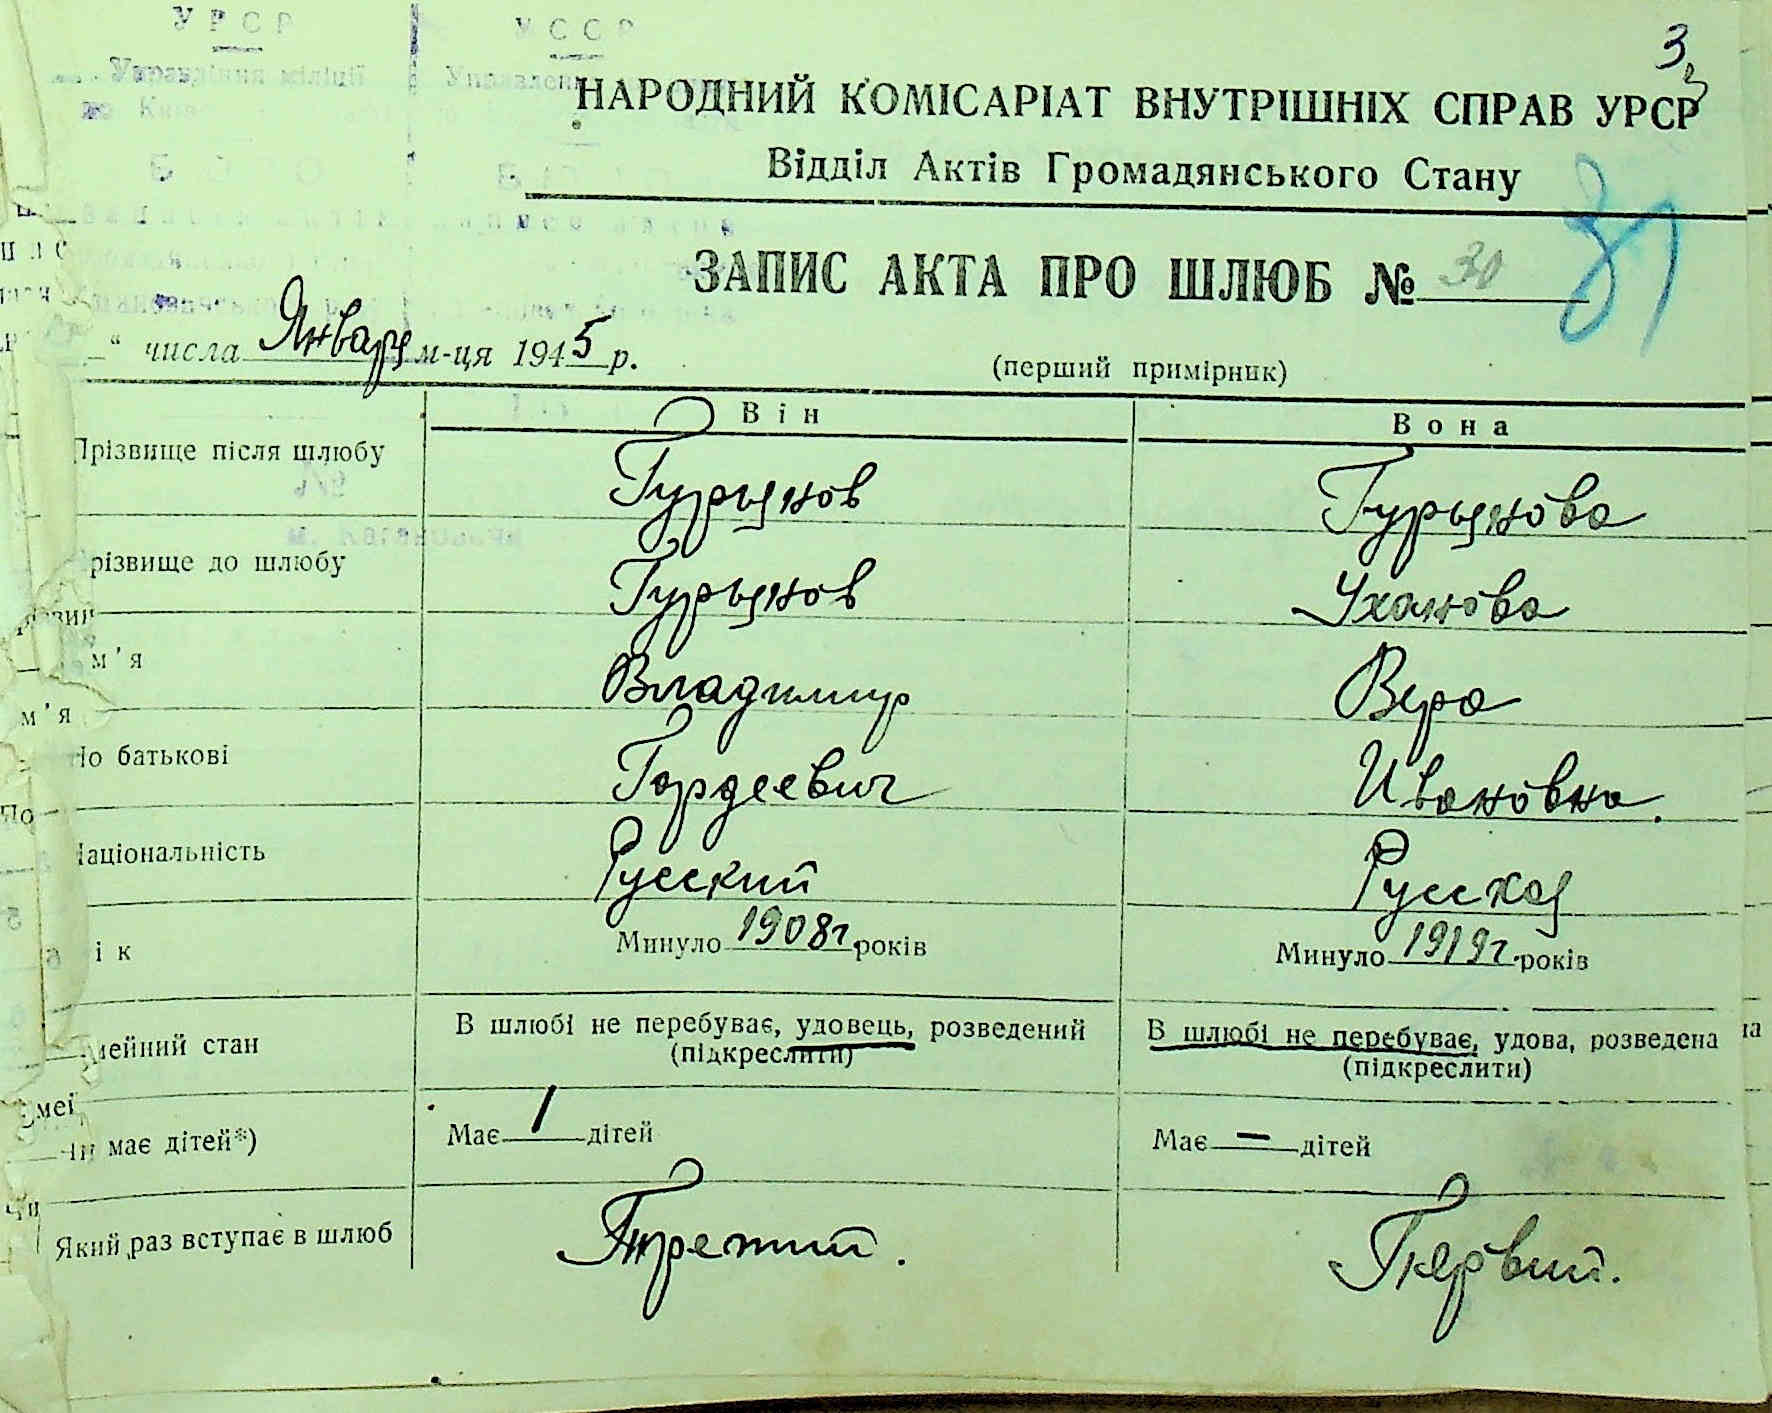 У Р С Р
У С С Р
Управління міліції
3
НАРОДНИЙ КОМІСАРІАТ ВНУТРІШНІХ СПРАВ УРСР
Відділ Актів Громадянського Стану
ЗАПИС АКТА ПРО ШЛЮБ № 30
“ числа Января м-ця 1945 р.
(перший примірник)
Він
Вона
Прізвище після шлюбу
Гурьянов
Гурьянова
різвище до шлюбу
Гурьянов
Уханова
м’я
Владимир
Вера
По батькові
Гордеевич
Ивановна.
Національність
Русский
Русская
ік
Минуло 1908г. років
Минуло 1919г. років
мейний стан
В шлюбі не перебуває, удовець, розведений
(підкреслити)
В шлюбі не перебуває, удова, розведена
(підкреслити)
Чи має дітей*)
Має 1 дітей
Має — дітей
Який раз вступає в шлюб
Третий.
Первый.